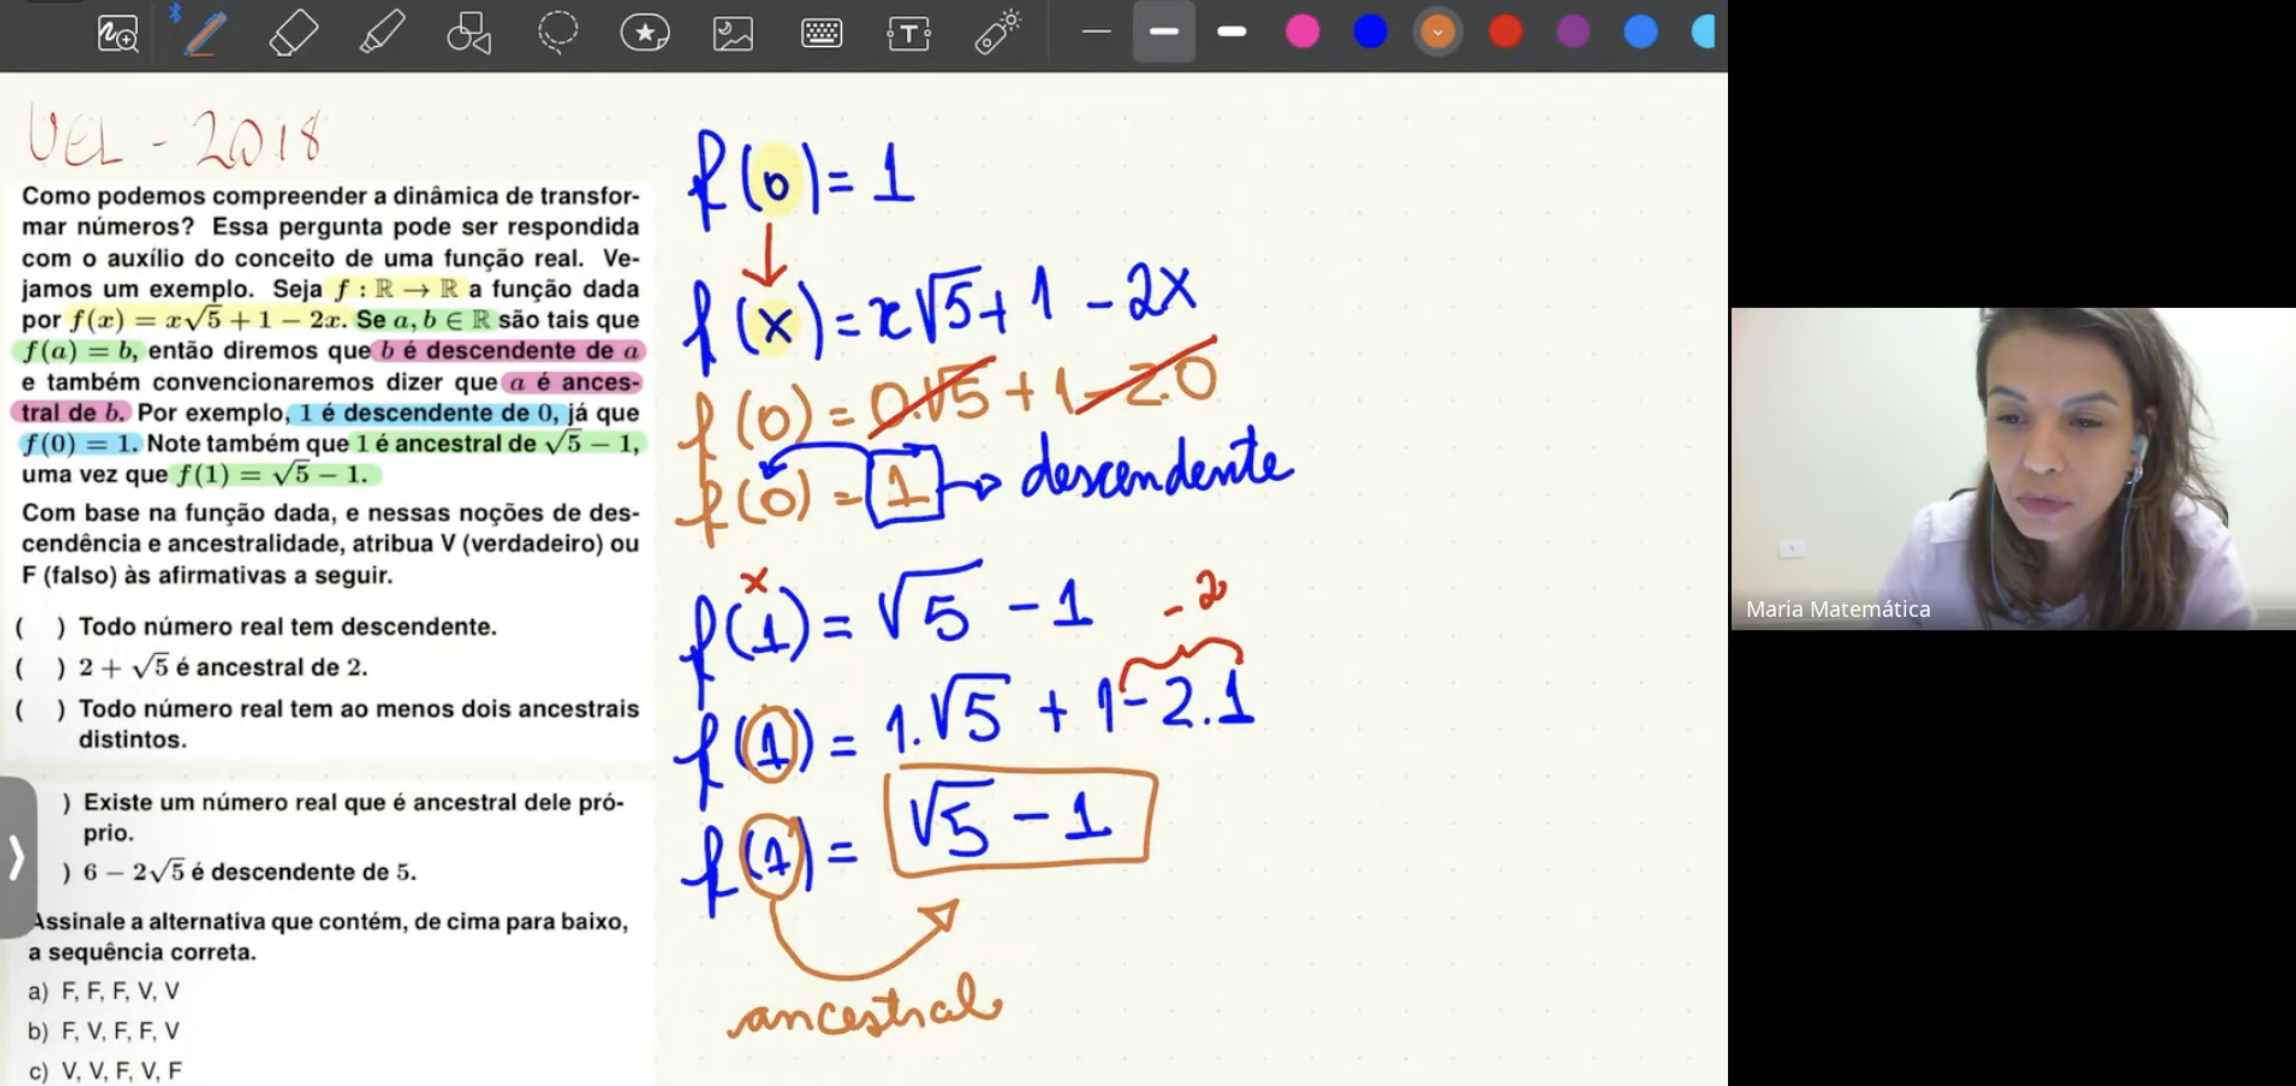 UEL - 2018
Como podemos compreender a dinâmica de transfor-
mar números? Essa pergunta pode ser respondida
com o auxílio do conceito de uma função real. Ve-
jamos um exemplo. Seja f : ℝ → ℝ a função dada
por f(x) = x√5 + 1 − 2x. Se a, b ∈ ℝ são tais que
f(a) = b, então diremos que b é descendente de a
e também convencionaremos dizer que a é ances-
tral de b. Por exemplo, 1 é descendente de 0, já que
f(0) = 1. Note também que 1 é ancestral de √5 − 1,
uma vez que f(1) = √5 − 1.
Com base na função dada, e nessas noções de des-
cendência e ancestralidade, atribua V (verdadeiro) ou
F (falso) às afirmativas a seguir.
( ) Todo número real tem descendente.
( ) 2 + √5 é ancestral de 2.
( ) Todo número real tem ao menos dois ancestrais
distintos.
) Existe um número real que é ancestral dele pró-
prio.
) 6 − 2√5 é descendente de 5.
Assinale a alternativa que contém, de cima para baixo,
a sequência correta.
a) F, F, F, V, V
b) F, V, F, F, V
c) V, V, F, V, F
f(0) = 1
f(x) = x√5 + 1 - 2x
f(0) = 0.√5 + 1 - 2.0
f(0) = 1 → descendente
x
f(1) = √5 - 1
- 2
f(1) = 1.√5 + 1 - 2.1
f(1) = √5 - 1
ancestral
Maria Matemática